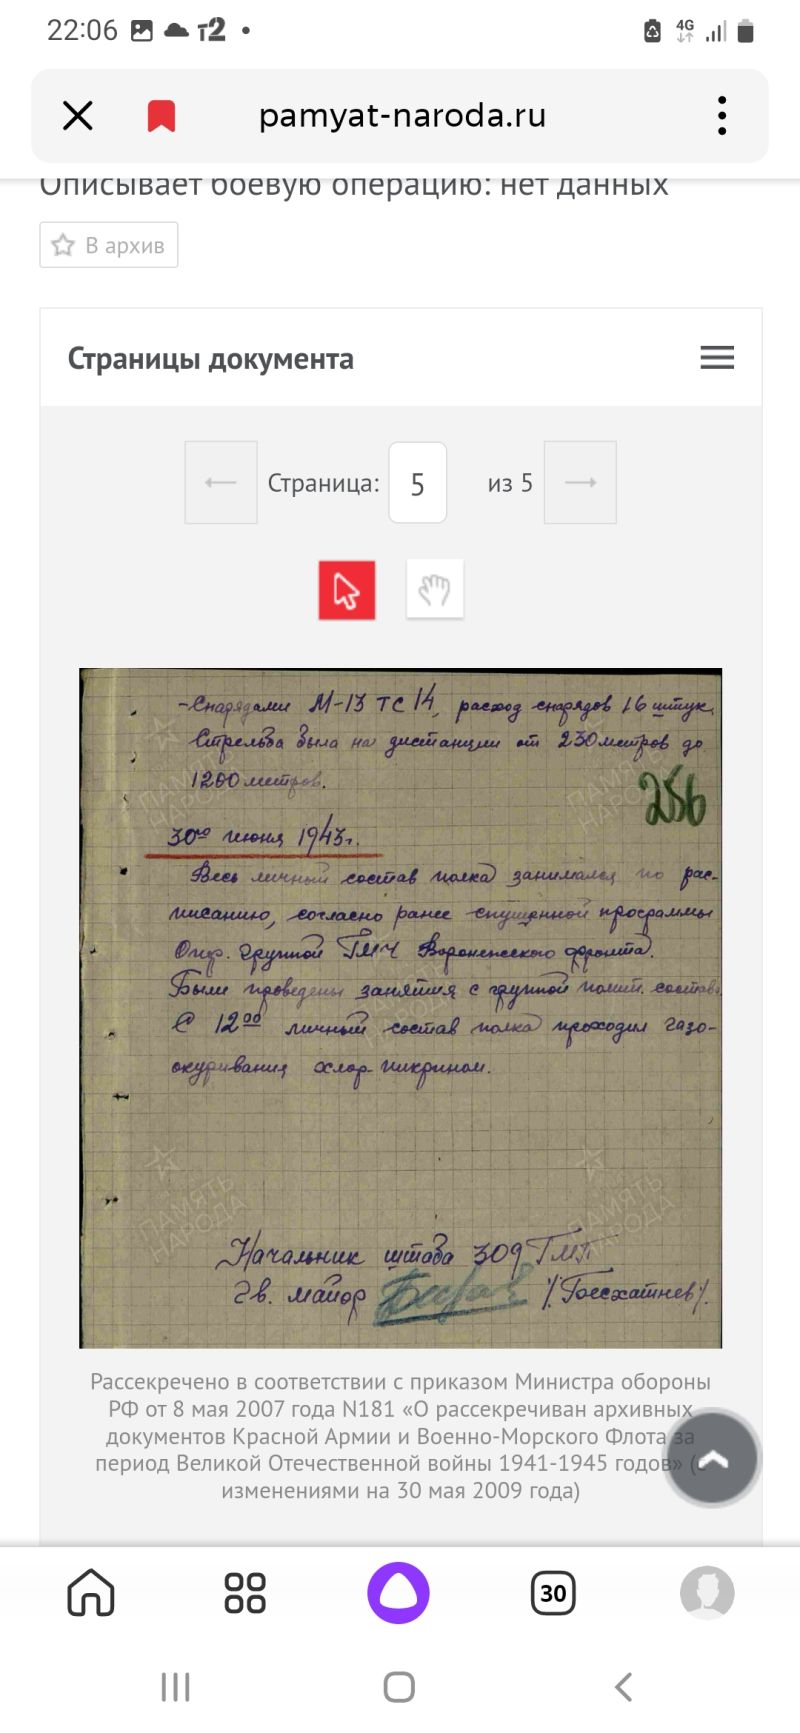 22:06 т2 • 4G
pamyat-naroda.ru
Описывает боевую операцию: нет данных
В архив
Страницы документа
Страница: 5 из 5
-Снарядами М-13 ТС 14, расход снарядов 16 штук.
Стрельба была на дистанции от 230 метров до
1200 метров.
256
30го июня 1943г.
Весь личный состав полка занимался по рас-
писанию, согласно ранее спущенной программы
Опер. группой ГМЧ Воронежского фронта.
Были проведены занятия с группой полит. состава
С 12 00 личный состав полка проходил газо-
окуривания хлор-пикрином.
ПАМЯТЬ НАРОДА
ПАМЯТЬ НАРОДА
Начальник штаба 309 ГМП
Гв. майор
Рассекречено в соответствии с приказом Министра обороны
РФ от 8 мая 2007 года N181 «О рассекречиван архивных
документов Красной Армии и Военно-Морского Флота за
период Великой Отечественной войны 1941-1945 годов» (с
изменениями на 30 мая 2009 года)
30